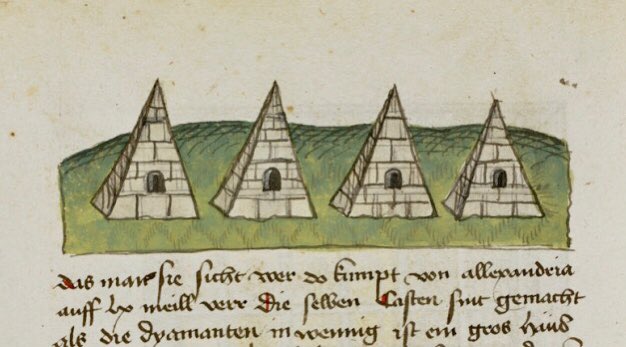 das man sie sicht wer do kumpt von allexandria
auff lx meill verr Die selben Casten sint gemacht
als die dyamanten in wennig ist ein gros haus